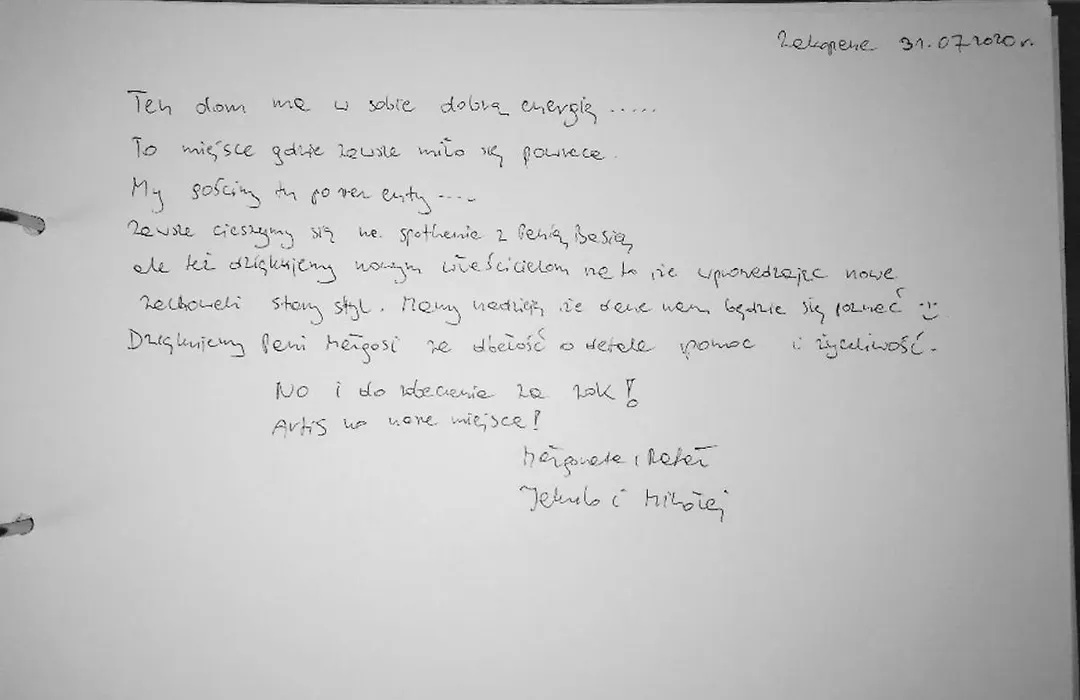 Zakopane 31.07.2020r.
Ten dom ma w sobie dobrą energię .....
To miejsce gdzie zawsze miło się powraca.
My gościmy tu po raz enty ....
Zawsze cieszymy się na spotkanie z Panią Basią,
ale też dziękujemy nowym właścicielom na to że wprowadzając nowe
zachowali stary styl. Mamy nadzieję, że dane nam będzie się poznać :)
Dziękujemy Pani Małgosi za dbałość o detale pomoc i życzliwość.
No i do zobaczenia za rok!
na nowe miejsce!
Małgorzata i Rafał
i Mikołaj